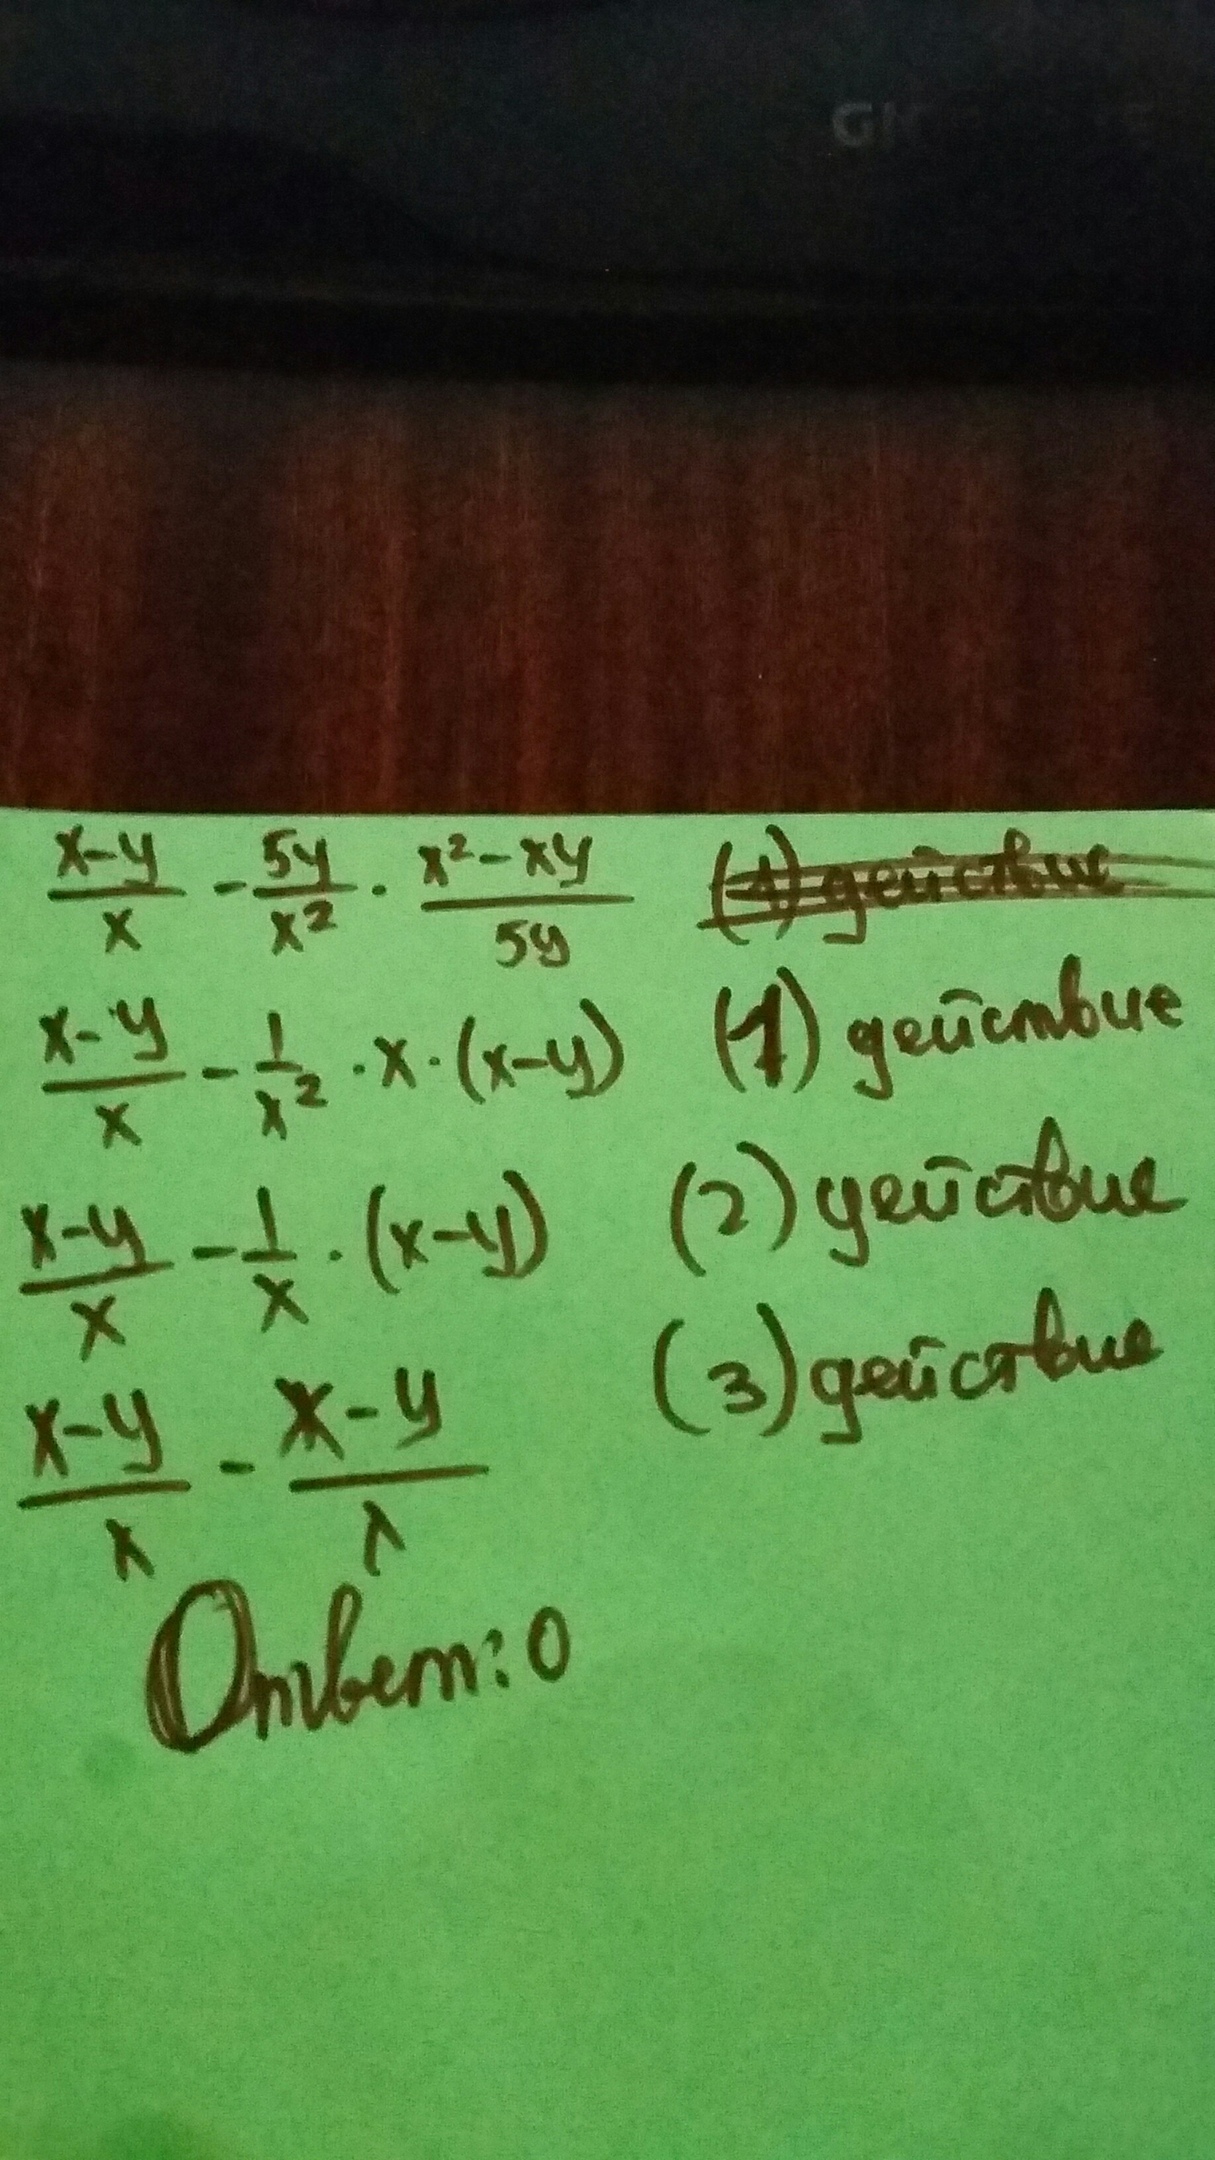 (x-y)/x - 5y/x² · (x²-xy)/5y (1) действие
(x-y)/x - 1/x² · x · (x-y) (1) действие
(x-y)/x - 1/x · (x-y) (2) действие
(x-y)/x - (x-y)/x (3) действие
Ответ: 0